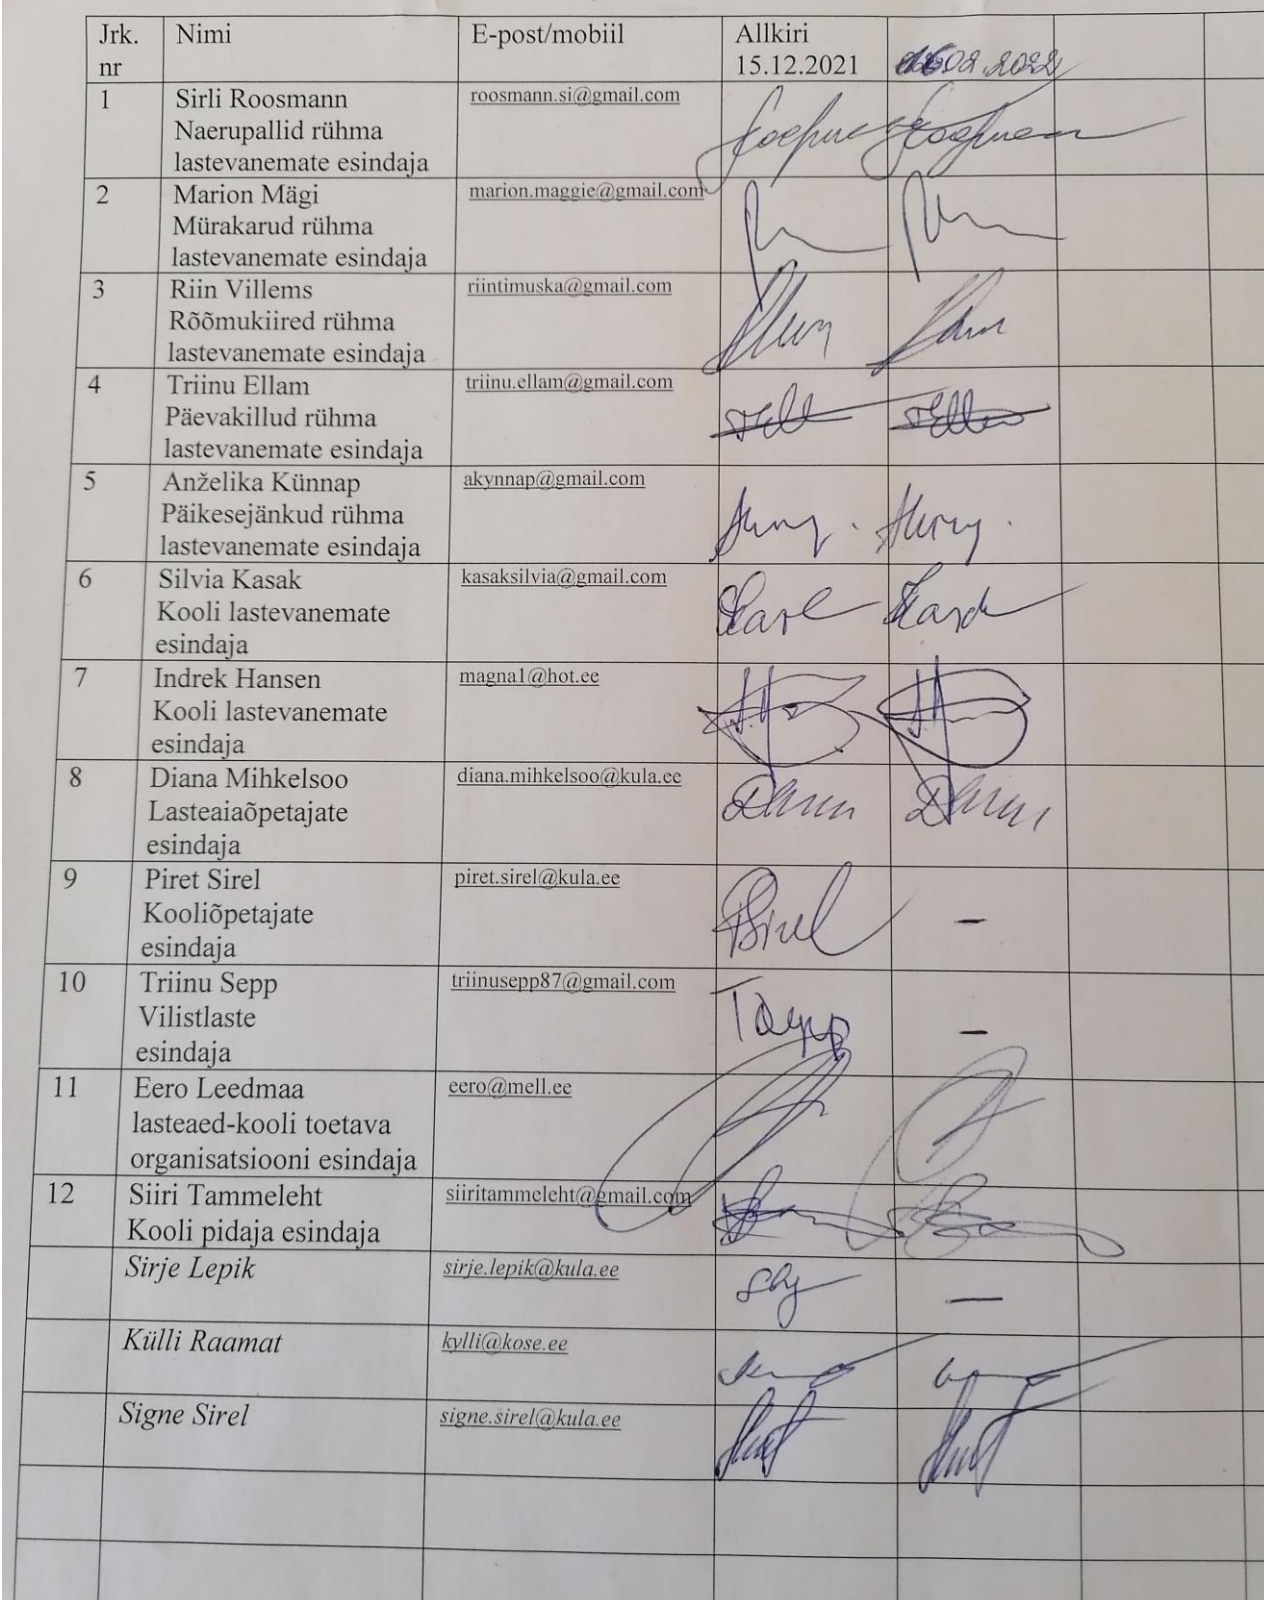 Jrk. nr
Nimi
E-post/mobiil
Allkiri
15.12.2021
02.2022
1
Sirli Roosmann
Naerupallid rühma
lastevanemate esindaja
roosmann.si@gmail.com
2
Marion Mägi
Mürakarud rühma
lastevanemate esindaja
marion.maggie@gmail.com
3
Riin Villems
Rõõmukiired rühma
lastevanemate esindaja
riintimuska@gmail.com
4
Triinu Ellam
Päevakillud rühma
lastevanemate esindaja
triinu.ellam@gmail.com
5
Anželika Künnap
Päikesejänkud rühma
lastevanemate esindaja
akynnap@gmail.com
6
Silvia Kasak
Kooli lastevanemate
esindaja
kasaksilvia@gmail.com
7
Indrek Hansen
Kooli lastevanemate
esindaja
magna1@hot.ee
8
Diana Mihkelsoo
Lasteaiaõpetajate
esindaja
diana.mihkelsoo@kula.ee
9
Piret Sirel
Kooliõpetajate
esindaja
piret.sirel@kula.ee
–
10
Triinu Sepp
Vilistlaste
esindaja
triinusepp87@gmail.com
–
11
Eero Leedmaa
lasteaed-kooli toetava
organisatsiooni esindaja
eero@mell.ee
12
Siiri Tammeleht
Kooli pidaja esindaja
siiritammeleht@gmail.com
Sirje Lepik
sirje.lepik@kula.ee
–
Külli Raamat
kylli@kose.ee
Signe Sirel
signe.sirel@kula.ee